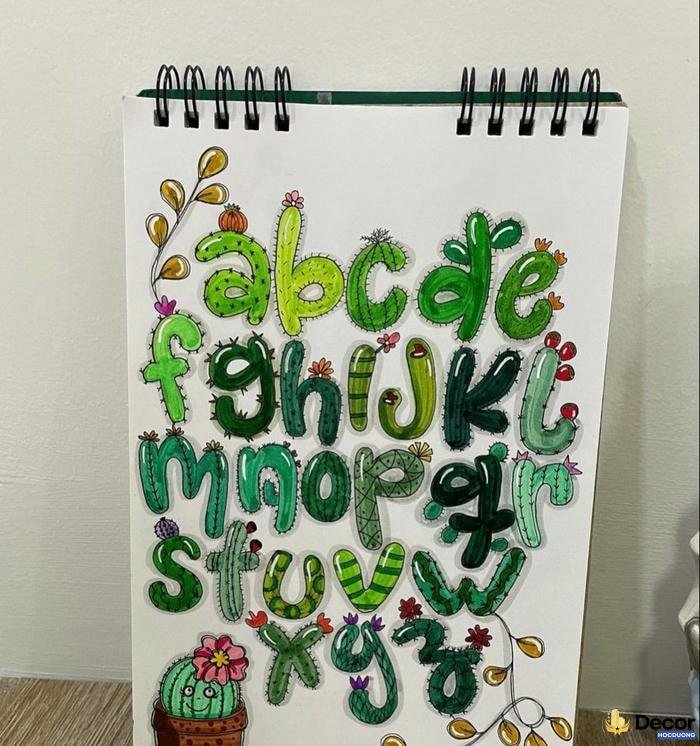 abcde
fghijkl
mnopqr
stuvw
xyz
Decor
HOCDUONG